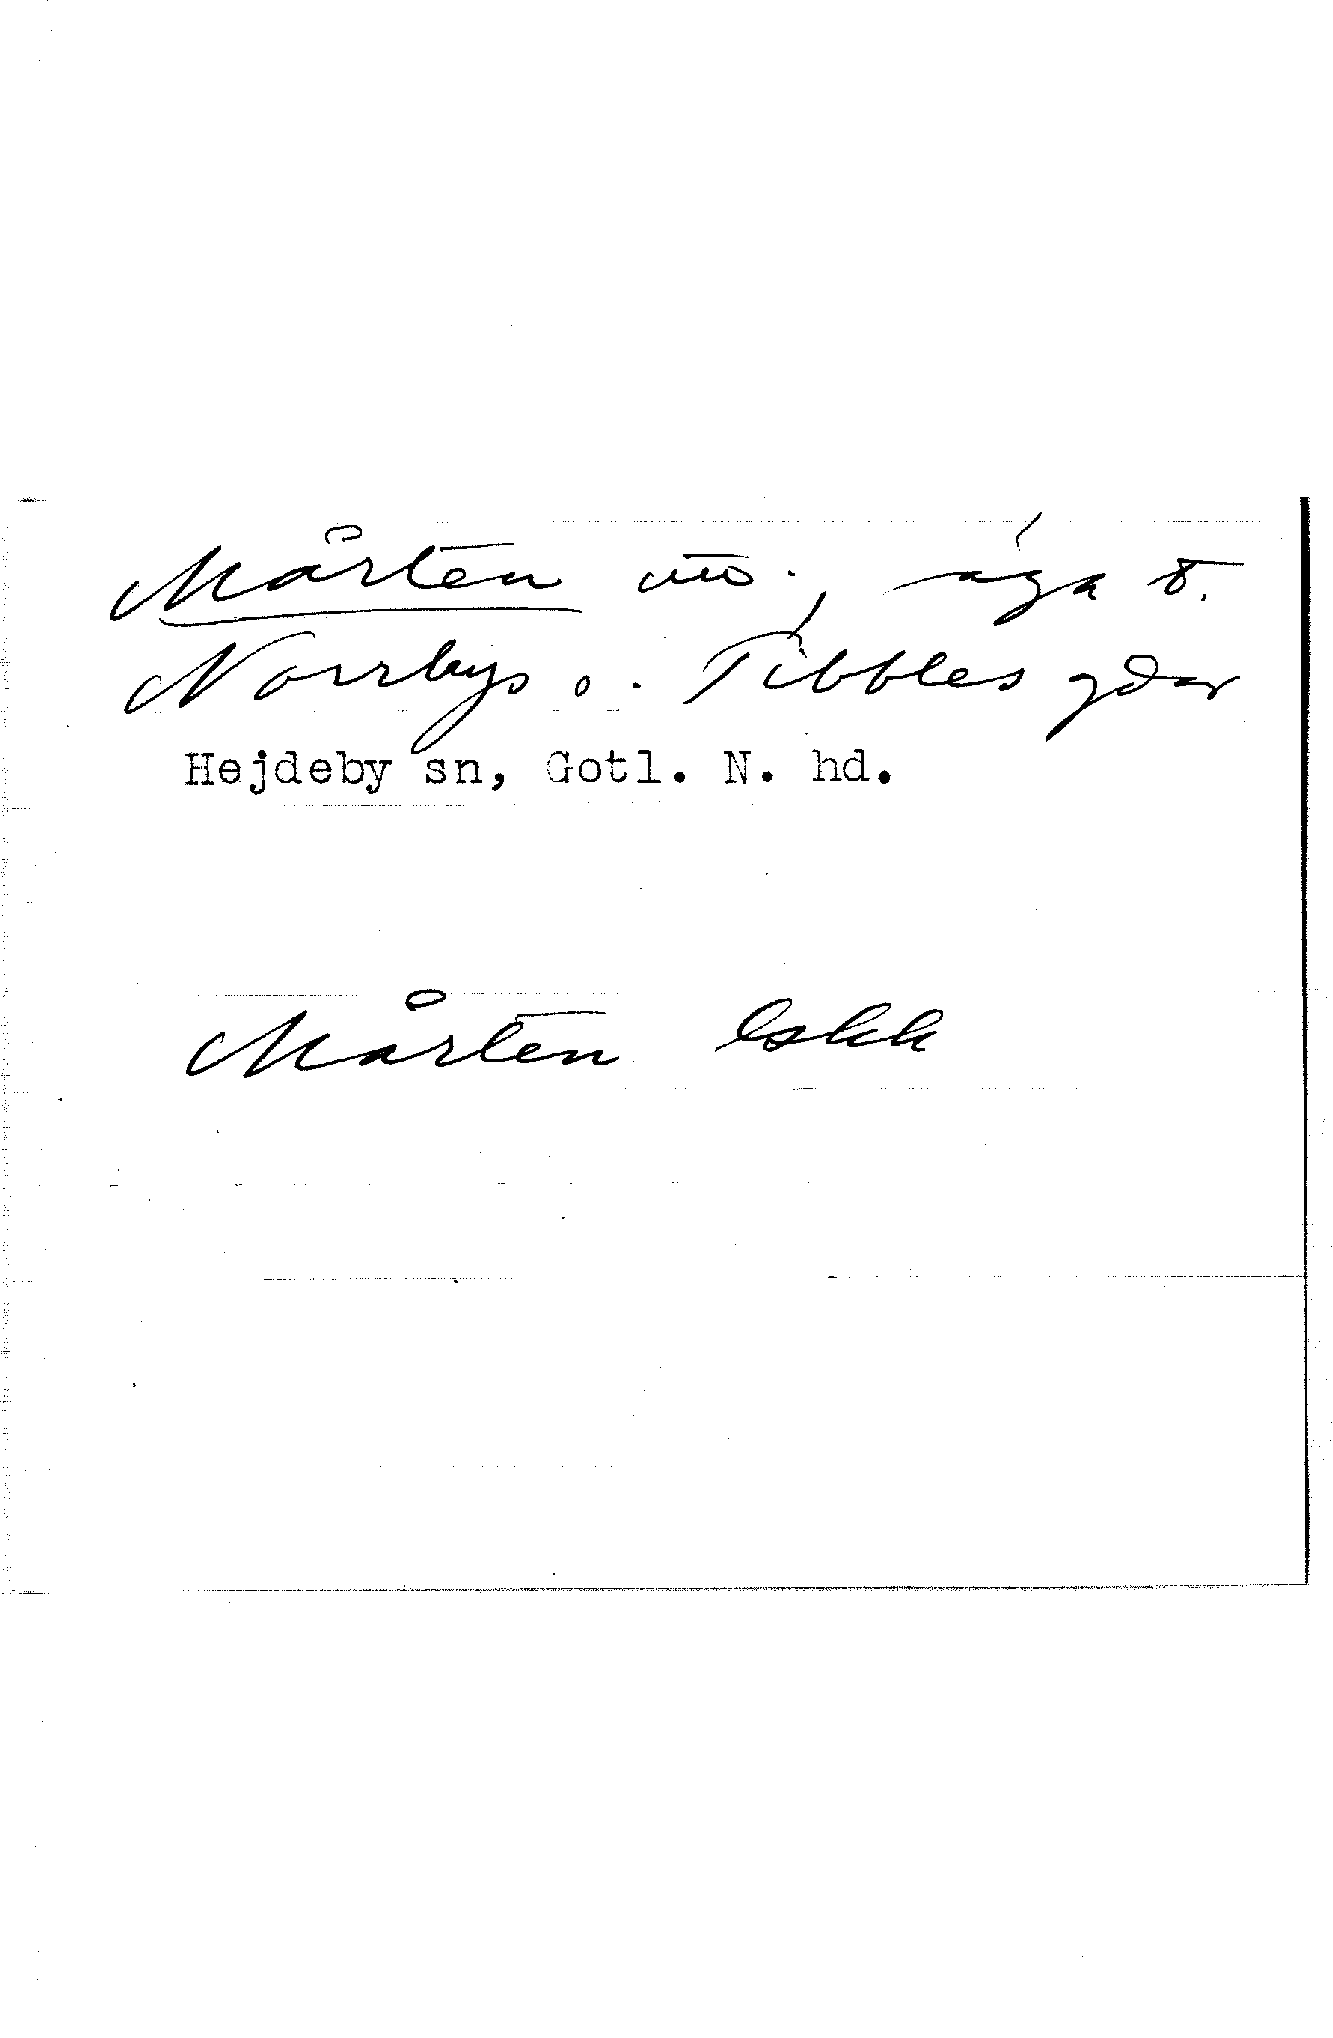 Mårten , äga t.
Norrbys o. Tibbles gdar
Hejdeby sn, Gotl. N. hd.
Mårten Eskk